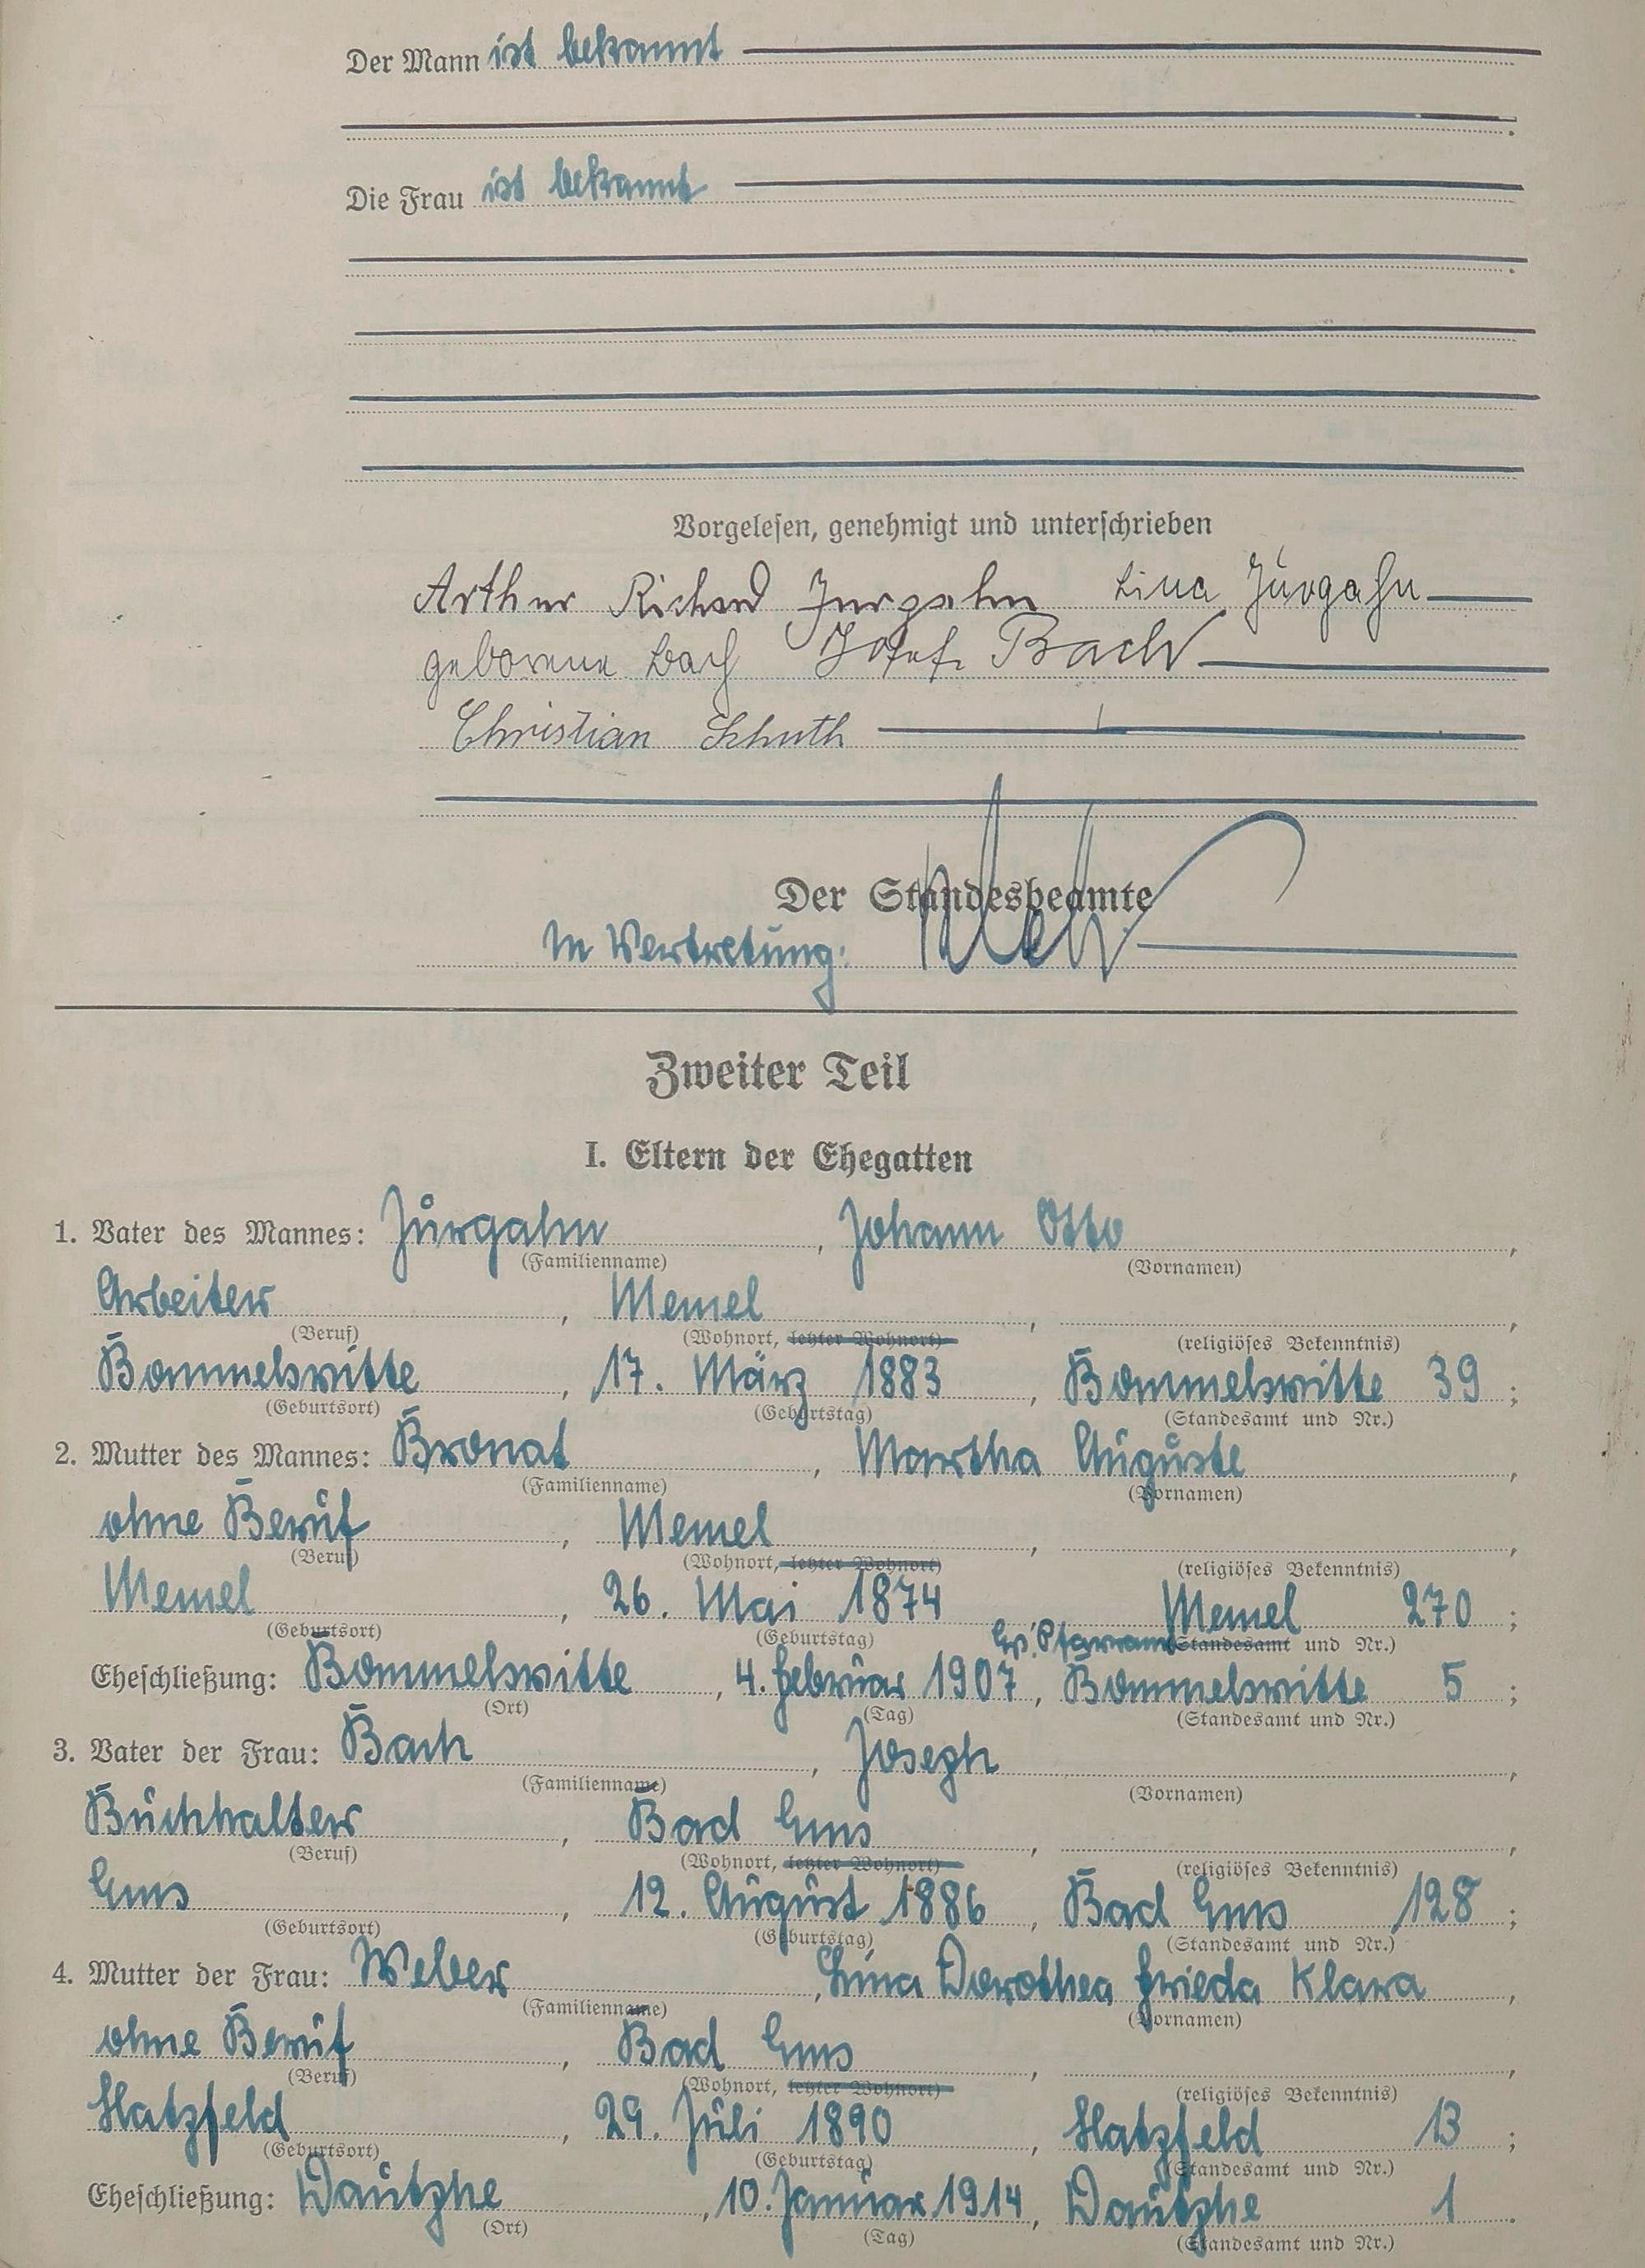 Der Mann ist bekannt
Die Frau ist bekannt
Vorgelesen, genehmigt und unterschrieben
Arthur Richard Jurgahn Lina Jürgahn
geborene Bach Josef Bach
Christian Schuth
Der Standesbeamte
In Vertretung:
Zweiter Teil
I. Eltern der Ehegatten
1. Vater des Mannes: Jurgahn, Johann Otto,
(Familienname) (Vornamen)
Arbeiter, Memel, ,
(Beruf) (Wohnort, letzter Wohnort) (religiöses Bekenntnis)
Bommelsvitte, 17. März 1883, Bommelsvitte 39;
(Geburtsort) (Geburtstag) (Standesamt und Nr.)
2. Mutter des Mannes: Bronat, Martha Auguste,
(Familienname) (Vornamen)
ohne Beruf, Memel, ,
(Beruf) (Wohnort, letzter Wohnort) (religiöses Bekenntnis)
Memel, 26. Mai 1874, Memel 270;
(Geburtsort) (Geburtstag) Ev. Pfarramt (Standesamt und Nr.)
Eheschließung: Bommelsvitte, 4. Februar 1907, Bommelsvitte 5;
(Ort) (Tag) (Standesamt und Nr.)
3. Vater der Frau: Bach, Joseph,
(Familienname) (Vornamen)
Buchhalter, Bad Ems, ,
(Beruf) (Wohnort, letzter Wohnort) (religiöses Bekenntnis)
Ems, 12. August 1886, Bad Ems 128;
(Geburtsort) (Geburtstag) (Standesamt und Nr.)
4. Mutter der Frau: Weber, Lina Dorothea Frieda Klara,
(Familienname) (Vornamen)
ohne Beruf, Bad Ems, ,
(Beruf) (Wohnort, letzter Wohnort) (religiöses Bekenntnis)
Hatzfeld, 29. Juli 1890, Hatzfeld 13;
(Geburtsort) (Geburtstag) (Standesamt und Nr.)
Eheschließung: Dautphe, 10. Januar 1914, Dautphe 1.
(Ort) (Tag) (Standesamt und Nr.)